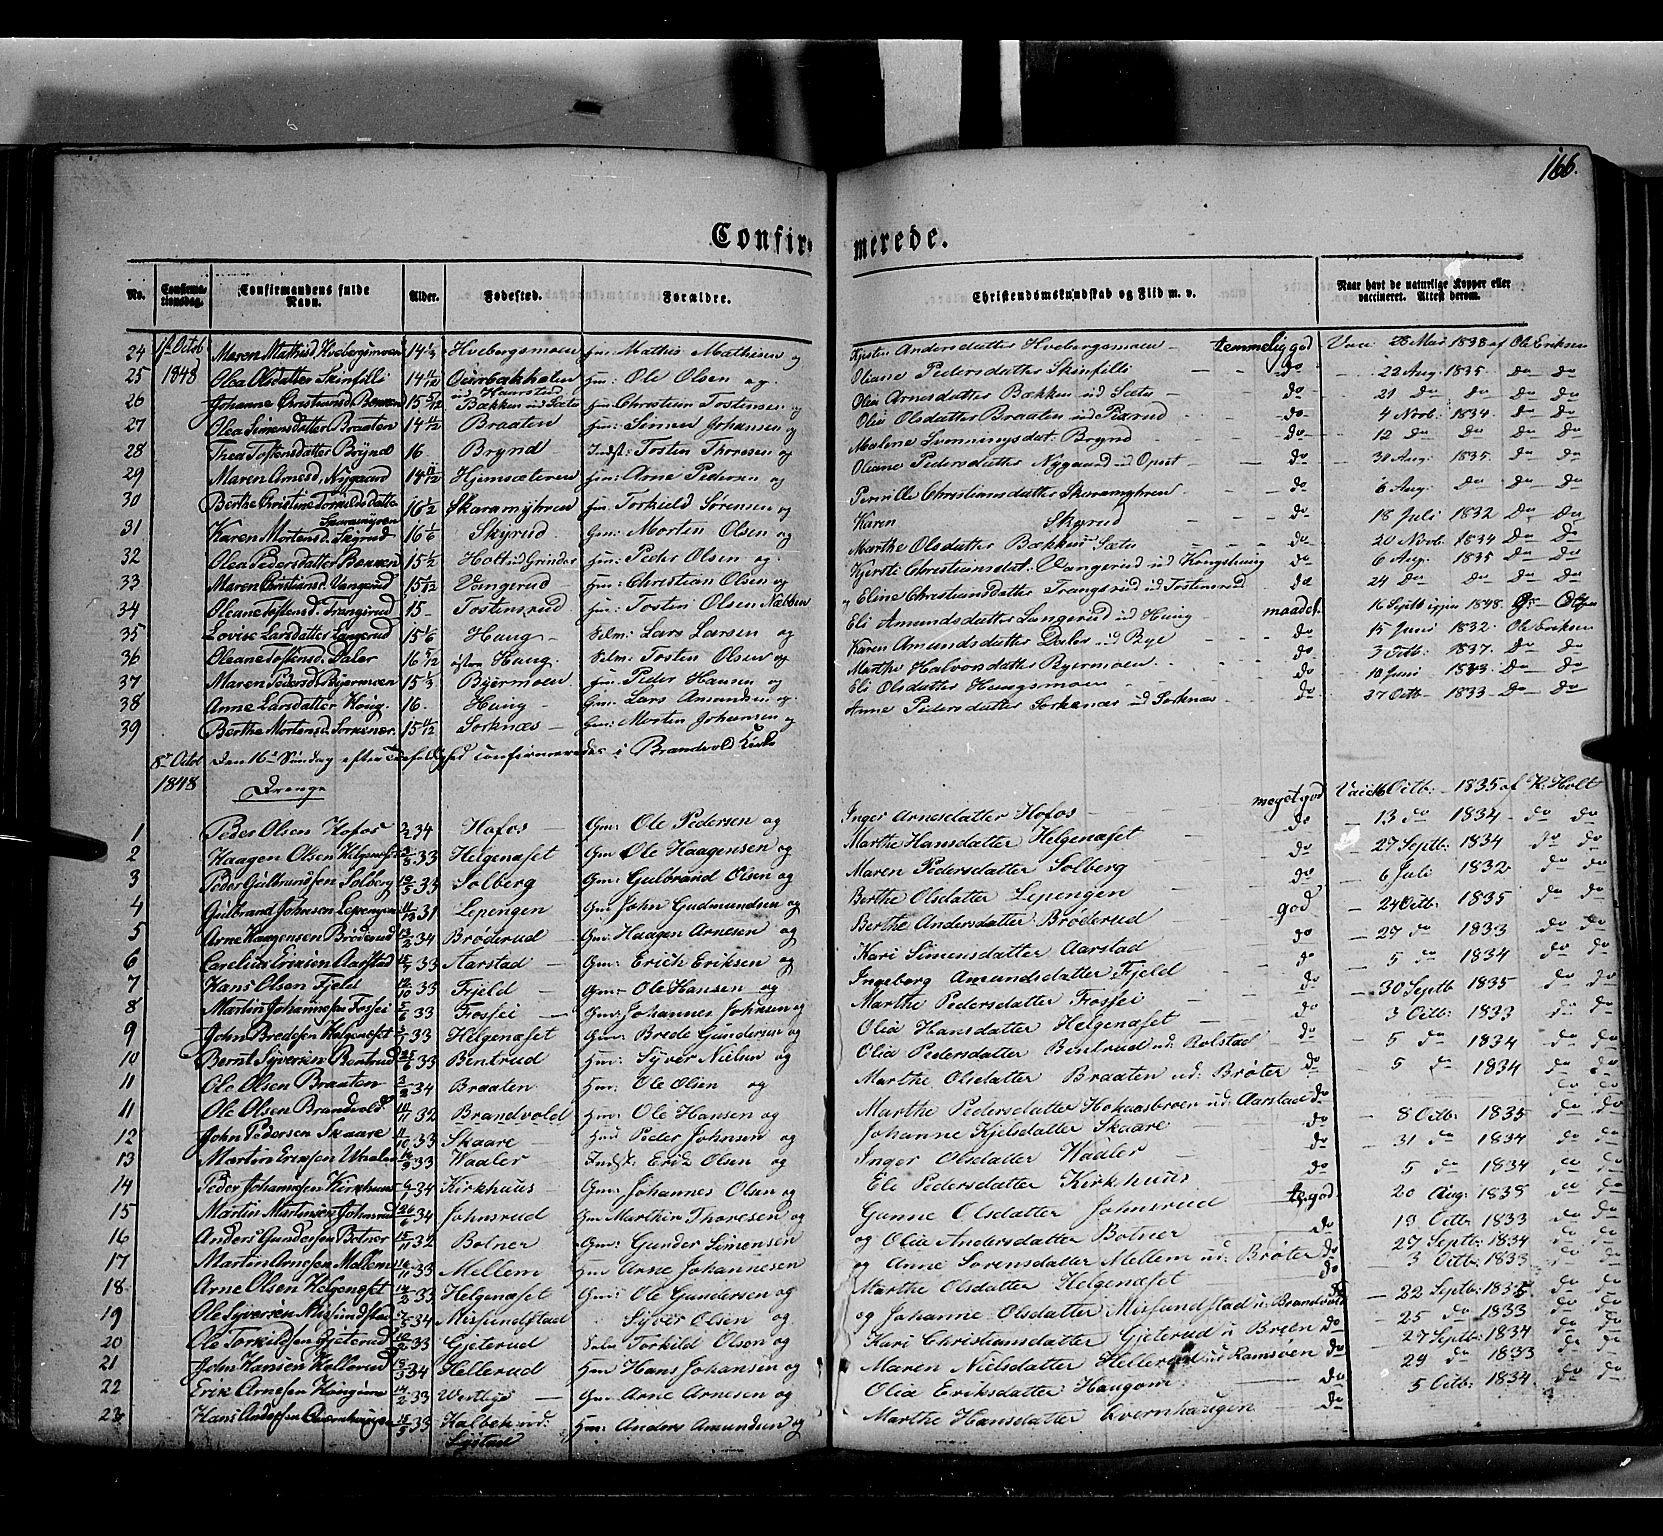 166.
Confir- merede.
No. Confirma-tionsdag. Confirmandens fulde Navn. Alder. Fødested. Forældre. Christendomskundskab og Flid m. v. Naar havt de naturlige Kopper eller vaccineret. Attest derom.
24 1ste Octob Maren Mathisd Hvebergsmoen 14 1/3 Hvebergsmoen Hm: Mathis Mathisen og Kjersti Andersdatter Hvebergsmoen temmelig god Vacc 28 Mai 1838 af Ole Eriksen
25 1848 Olea Olsdatter Skinfilli 14 Hm: Ole Olsen og Oliane Pedersdatter Skinfilli do 22 Aug. 1835. do do
26 Johanne Christiansd. Bækken 15 5/12 Bækken ud Sæter Hm: Christian Tostensen og Olia Arnesdatter Bækken ud Sæter do 21 do do do do
27 Olea Simensdatter Braaten 14 1/2 Braaten Hm: Simen Johansen og Olia Olsdatter Braaten ud do 4 Novb. 1834. do do
28 Thea Tostensdatter Brynd 16 Brynd Indst: Tosten Thoresen og Malene Brynd do 12 do do do do
29 Maren Arnesd. Nygaard 14 Hjemsæteren Hm: Arne Pedersen og Oliane Pedersdatter Nygaard ud Opset do 30 Aug. 1835. do do
30 Berthe Christine Torkildsdatter Skaramyren 16 1/2 Skaramyhren Hm: Torkield Sørensen og Pernille Christiansdatter Skaramyhren do 6 Aug. do do do
31 Karen Mortensd. Skyrud 16 1/6 Skyrud Gm: Morten Olsen og Karen Skyrud do 18 Juli 1832 do do
32 Olea Pedersdatter Bækken 15 1/2 Holt ud Grinder Hm: Peder Olsen og Marthe Olsdatter Bækken Sæter do 20 Novb. 1834 do do
33 Maren Christiansd. Vangerud 15 Vangerud Hm: Christian Olsen og Kjersti Christiansdat. Vangerud ud Kongshoug do 6 Aug. 1835 do do
34 Oleane Tostensd. Trangsrud 15. Tostensrud Hm: Tosten Olsen Næbben og Eline Christiansdatter Trangsrud ud Tostensrud do 24 do do do do
35 Lovise Larsdatter Langerud 15 1/6 Haug Selm: Lars Larsen og Eli Amundsdatter Langerud ud Haug maadel. 16 Septb igjen 1848.
36 Oleane Tostensd. Daler 16 5/12 Haug. Selm: Tosten Olsen og Karen Amundsdatter Daler ud Bye do 15 Juni 1832. Ole Eriksen
37 Maren Pedersd. Byermoen 15 1/3 Byermoen Hm: Peder Hansen og Marthe Halvorsdatter Byermoen do 3 Octb. 1837. do do
38 Anne Larsdatter Houg. 16. Haug Gm: Lars Amundsen og Eli Olsdatter Hougsmoen do 10 Juni 1833. do do
39 Berthe Mortensd. Sorknæs 15 Sorknæs Gm: Morten Johansen og Anne Pedersdatter Sorknæs ud Sorknæs do 27 Octb 1833 do do
8de Octob 1848 Den 16de Søndag efter Trefoldighed confirmeredes i Brandvold Kirke
Drenge
1 Peder Olsen Hofos 34 Hofos Gm: Ole Pedersen og Inger Arnesdatter Hofos meget god Vacc 16 Octb: 1835 af K: Holt
2 Haagen Olsen Helgenæset 33 Helgenæset Gm Ole Haagensen og Marthe Hansdatter Helgenæset do 13 do 1834 do do
3 Peder Gulbrandsen Solberg 33 Solberg Gm: Gulbrand Olsen og Maren Pedersdatter Solberg do 27 Septb: 1834 do do
4 Gulbrand Johnsen Lepengen 31 Lepengen Gm John Gudmundsen og Berthe Olsdatter Lepengen do 6 Juli 1832 do do
5 Arne Haagensen Brøderud 34 Brøderud Gm: Haagen Arnesen og Berthe Andersdatter Brøderud god 24 Octb: 1835 do do
6 Carelius Eriksen Aarstad 33 Aarstad Gm: Erich Eriksen og Kari Simensdatter Aarstad do 27 do 1833 do do
7 Hans Olsen Fjeld 33 Fjeld Gm: Ole Hansen og Ingeborg Amundsdatter Fjeld do 5 do 1834 do do
8 Martin Johannesen Fossei 33 Fossei Gm: Johannes Johnsen og Marthe Pedersdatter Fossei do 30 Septb 1835 do do
9 John Bredesen Helgenæset 33 Helgenæset Gm: Brede Gundersen og Olia Hansdatter Helgenæset do 3 Octb: 1833 do do
10 Bernt Syversen Bentrud 33 Bentrud Hm: Syver Nielsen og Olia Pedersdatter Bentrud ud: Rolstad do 5 do 1834 do do
11 Ole Olsen Braaten 34 Braaten Hm: Ole Olsen og Marthe Olsdatter Braaten ud: Brøter do 5 do 1834 do do
11 Ole Olsen Brandvold 32 Brandvold Hm: Ole Hansen og Marthe Pedersdatter ud: Aarstad do 8 Octb: 1835 do do
12 John Pedersen Skaare 33 Skaare Peder Johnsen og Johanne Kjelsdatter Skaare do 31 do 1834 do do
13 Martin Eriksen Waaler 33 Waaler Indst: Erik Olsen og Inger Olsdatter Waaler do 5 do 1834 do do
14 Peder Johannesen Kirkhuus 34 Kirkhuus Gm: Johannes Olsen og Eli Pedersdatter Kirkhuus do 20 Aug: 1835 do do
15 Martin Mortensen Johnsrud 34 Johnsrud Gm Marthin Thoresen og Gunne Olsdatter Johnsrud te. god 19 Octb: 1833 do do
16 Anders Gundersen Botner 32 Botner Gm: Gunder Simensen og Olia Andersdatter Botner do 27 Septb: 1834 do do
17 Martin Arnesen Mellem 33 Mellem Hm Arne Johannesen og Anne Sørensdatter Mellem ud: Brøter do 3 Octb: 1833 do do
18 Arne Olsen Helgenæset 33 Helgenæset Gm: Ole Gundersen og Marthe Olsdatter Helgenæset do 22 Septb: 1835 do do
19 Ole Syversen Missundstad 34 Missundstad Syver Olsen og Johanne Olsdatter Missundstad u: Brandvold do 25 do 1833 do do
20 Ole Torkildsen Gjeterud 33 Gjeterud Selm Torkild Olsen og Kari Christiansdatter Gjeterud u Breen do 27 Septb: 1834 do do
21 John Hansen Hellerud 34 Hellerud Hm Hans Johansen og Maren Nielsdatter Hellerud ud Ramsøen do 29 do 1833 do do
22 Erik Arnesen Haugom 33 Westbye Gm: Arne Arnesen og Olia Eriksdatter Haugom do 5 Octb: 1834 do do
23 Hans Andersen Qvernhaugen 33 Kalbek ud: Hm: Anders Amundsen og Marthe Hansdatter Qvernhaugen do